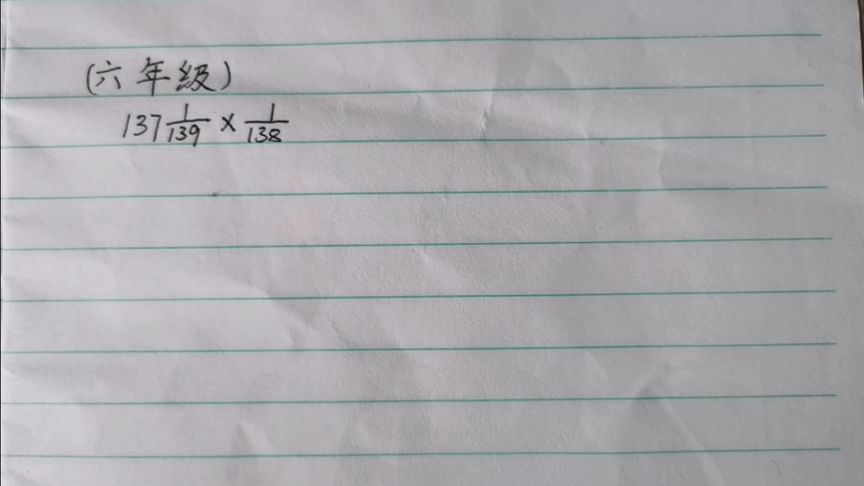 (六年级)
137 1/139 × 1/138